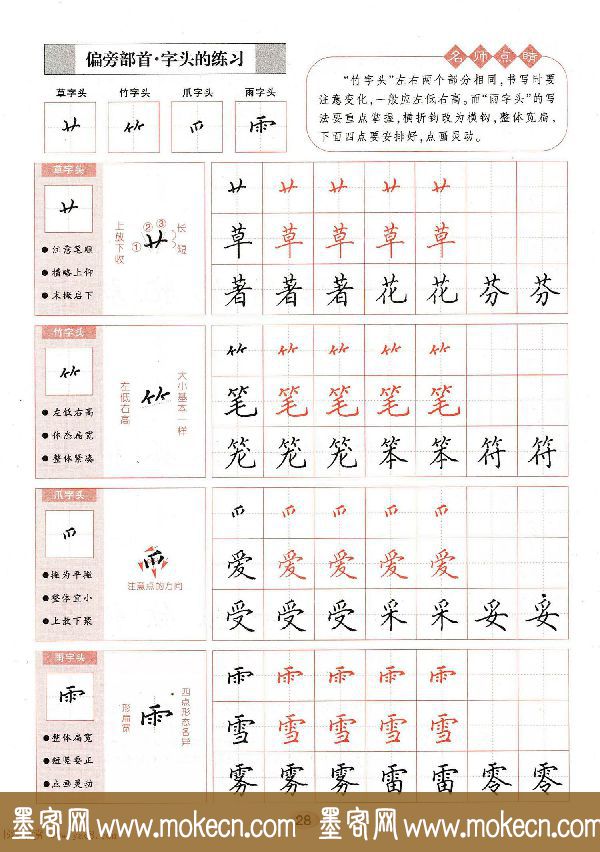 偏旁部首·字头的练习
名师点睛
草字头 竹字头 爪字头 雨字头
艹 ⺮ 爫 ⻗
“竹字头”左右两个部分相同,书写时要
注意变化,一般应左低右高。而“雨字头”的写
法要重点掌握,横折钩改为横钩,整体宽扁,
下面四点要安排好,点画灵动。
草字头
艹
●注意笔顺
●横略上仰
●末撇启下
上放下收
①②③
艹
长
短
艹 艹 艹 艹 艹
草 草 草 草 草
著 著 著 花 花 芬 芬
竹字头
⺮
●左低右高
●体态扁宽
●整体紧凑
左低右高
⺮
大小基本一样
⺮ ⺮ ⺮ ⺮ ⺮
笔 笔 笔 笔 笔
笼 笼 笼 笨 笨 符 符
爪字头
爫
●撇为平撇
●整体宜小
●上放下聚
爫
注意点的方向
爫 爫 爫 爫 爫
爱 爱 爱 爱 爱
受 受 受 采 采 妥 妥
雨字头
⻗
●整体扁宽
●短竖要正
●点画灵动
形扁宽
⻗
四点形态各异
⻗ ⻗ ⻗ ⻗ ⻗
雪 雪 雪 雪 雪
雾 雾 雾 雷 雷 零 零
28
墨客网 www.mokecn.com 墨客网 www.mokecn.com